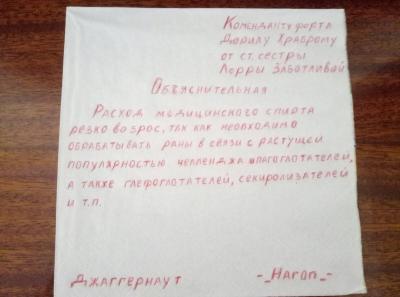 Коменданту форта
Дюрилу Храброму
от ст. сестры
Лорры Заботливай
Объяснительная
Расход медицинского спирта
резко возрос, так как необходимо
обрабатывать раны в связи с растущей
популярностью челленджа шпагоглотателей,
а также глефоглотателей, секиролизателей
и т.п.
Джаггернаут -_Haron_-